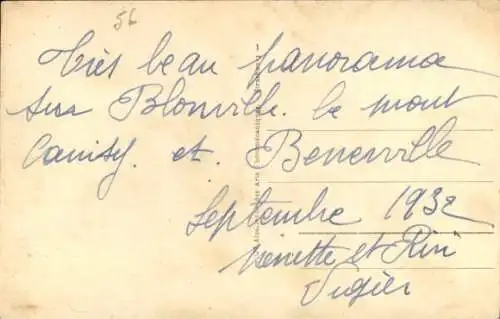 56
Très beau panorama
sur Blonville. le mont
Canisy. et. Benerville
Septembre 1932
et Riri
Vigier